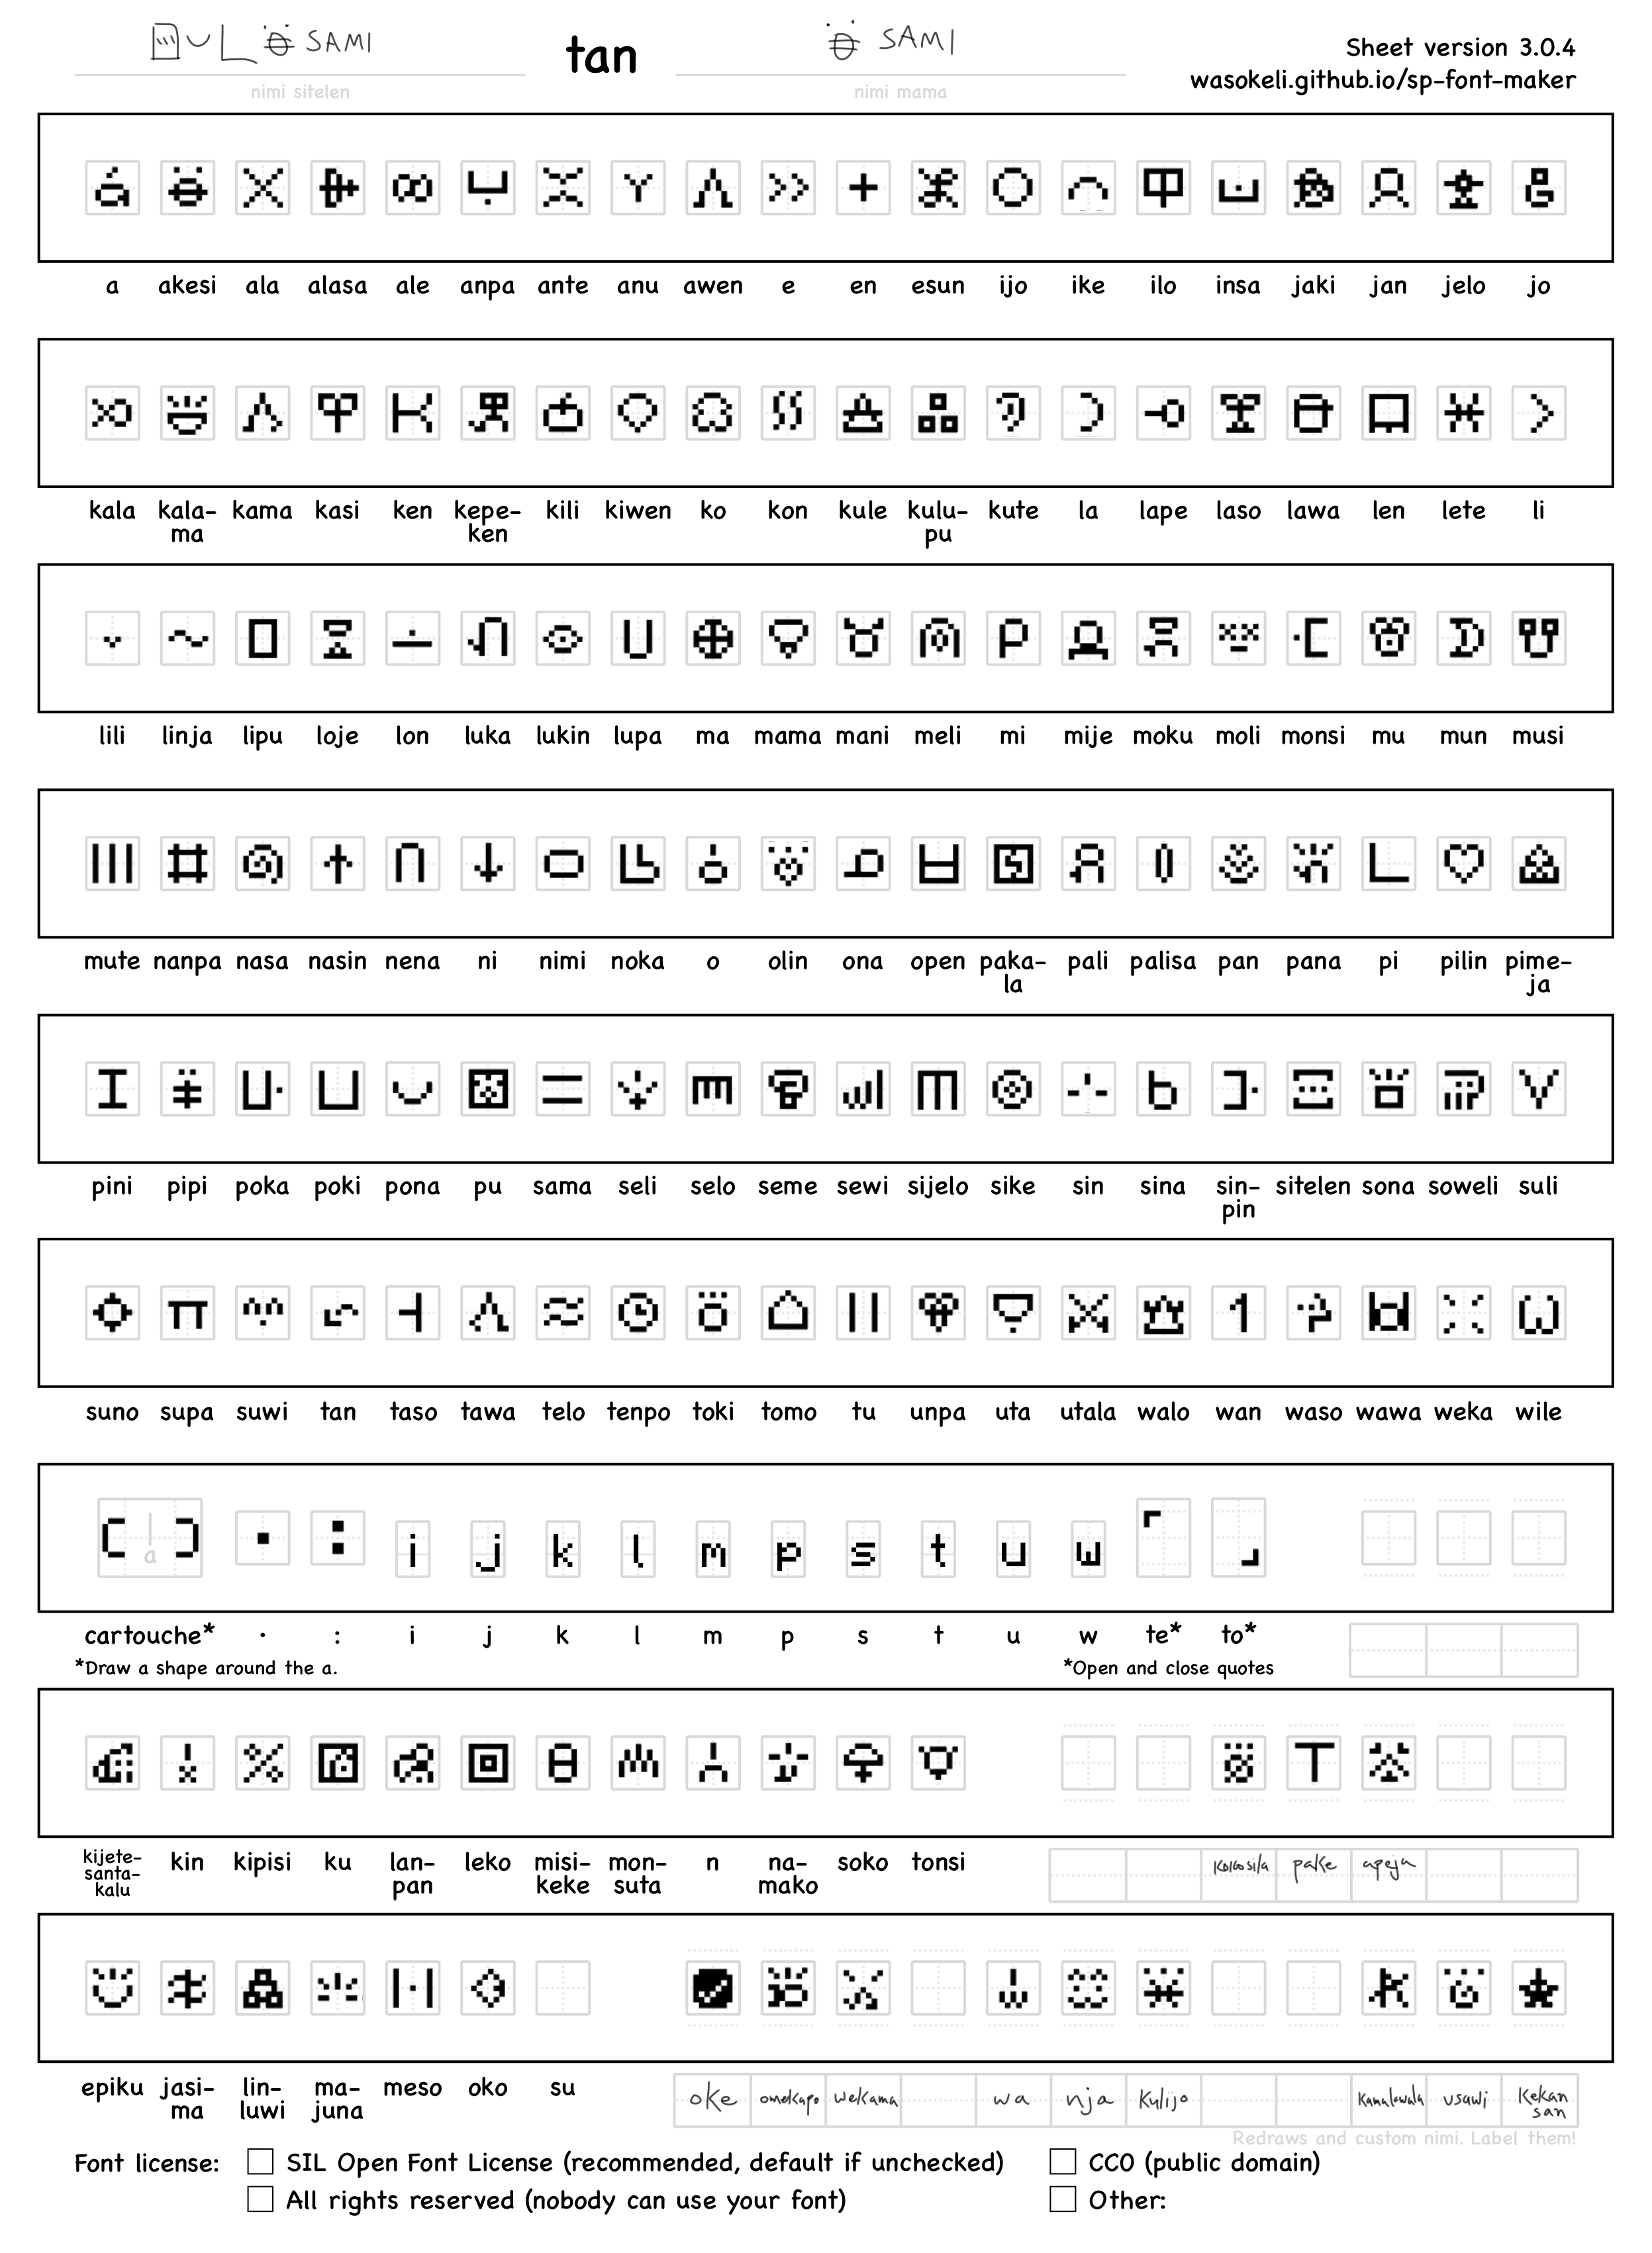 SAMI tan SAMI
nimi sitelen nimi mama
Sheet version 3.0.4
wasokeli.github.io/sp-font-maker
a akesi ala alasa ale anpa ante anu awen e en esun ijo ike ilo insa jaki jan jelo jo
kala kala-ma kama kasi ken kepe-ken kili kiwen ko kon kule kulu-pu kute la lape laso lawa len lete li
lili linja lipu loje lon luka lukin lupa ma mama mani meli mi mije moku moli monsi mu mun musi
mute nanpa nasa nasin nena ni nimi noka o olin ona open paka-la pali palisa pan pana pi pilin pime-ja
pini pipi poka poki pona pu sama seli selo seme sewi sijelo sike sin sina sin-pin sitelen sona soweli suli
suno supa suwi tan taso tawa telo tenpo toki tomo tu unpa uta utala walo wan waso wawa weka wile
a i j k l m p s t u w
cartouche* · : i j k l m p s t u w te* to*
*Draw a shape around the a. *Open and close quotes
kijete-santa-kalu kin kipisi ku lan-pan leko misi-keke mon-suta n na-mako soko tonsi kokosila pake apeja
epiku jasi-ma lin-luwi ma-juna meso oko su oke omekapo wekama wa nja kulijo kamalawala usawi kekan san
Redraws and custom nimi. Label them!
Font license: SIL Open Font License (recommended, default if unchecked) CC0 (public domain)
All rights reserved (nobody can use your font) Other: